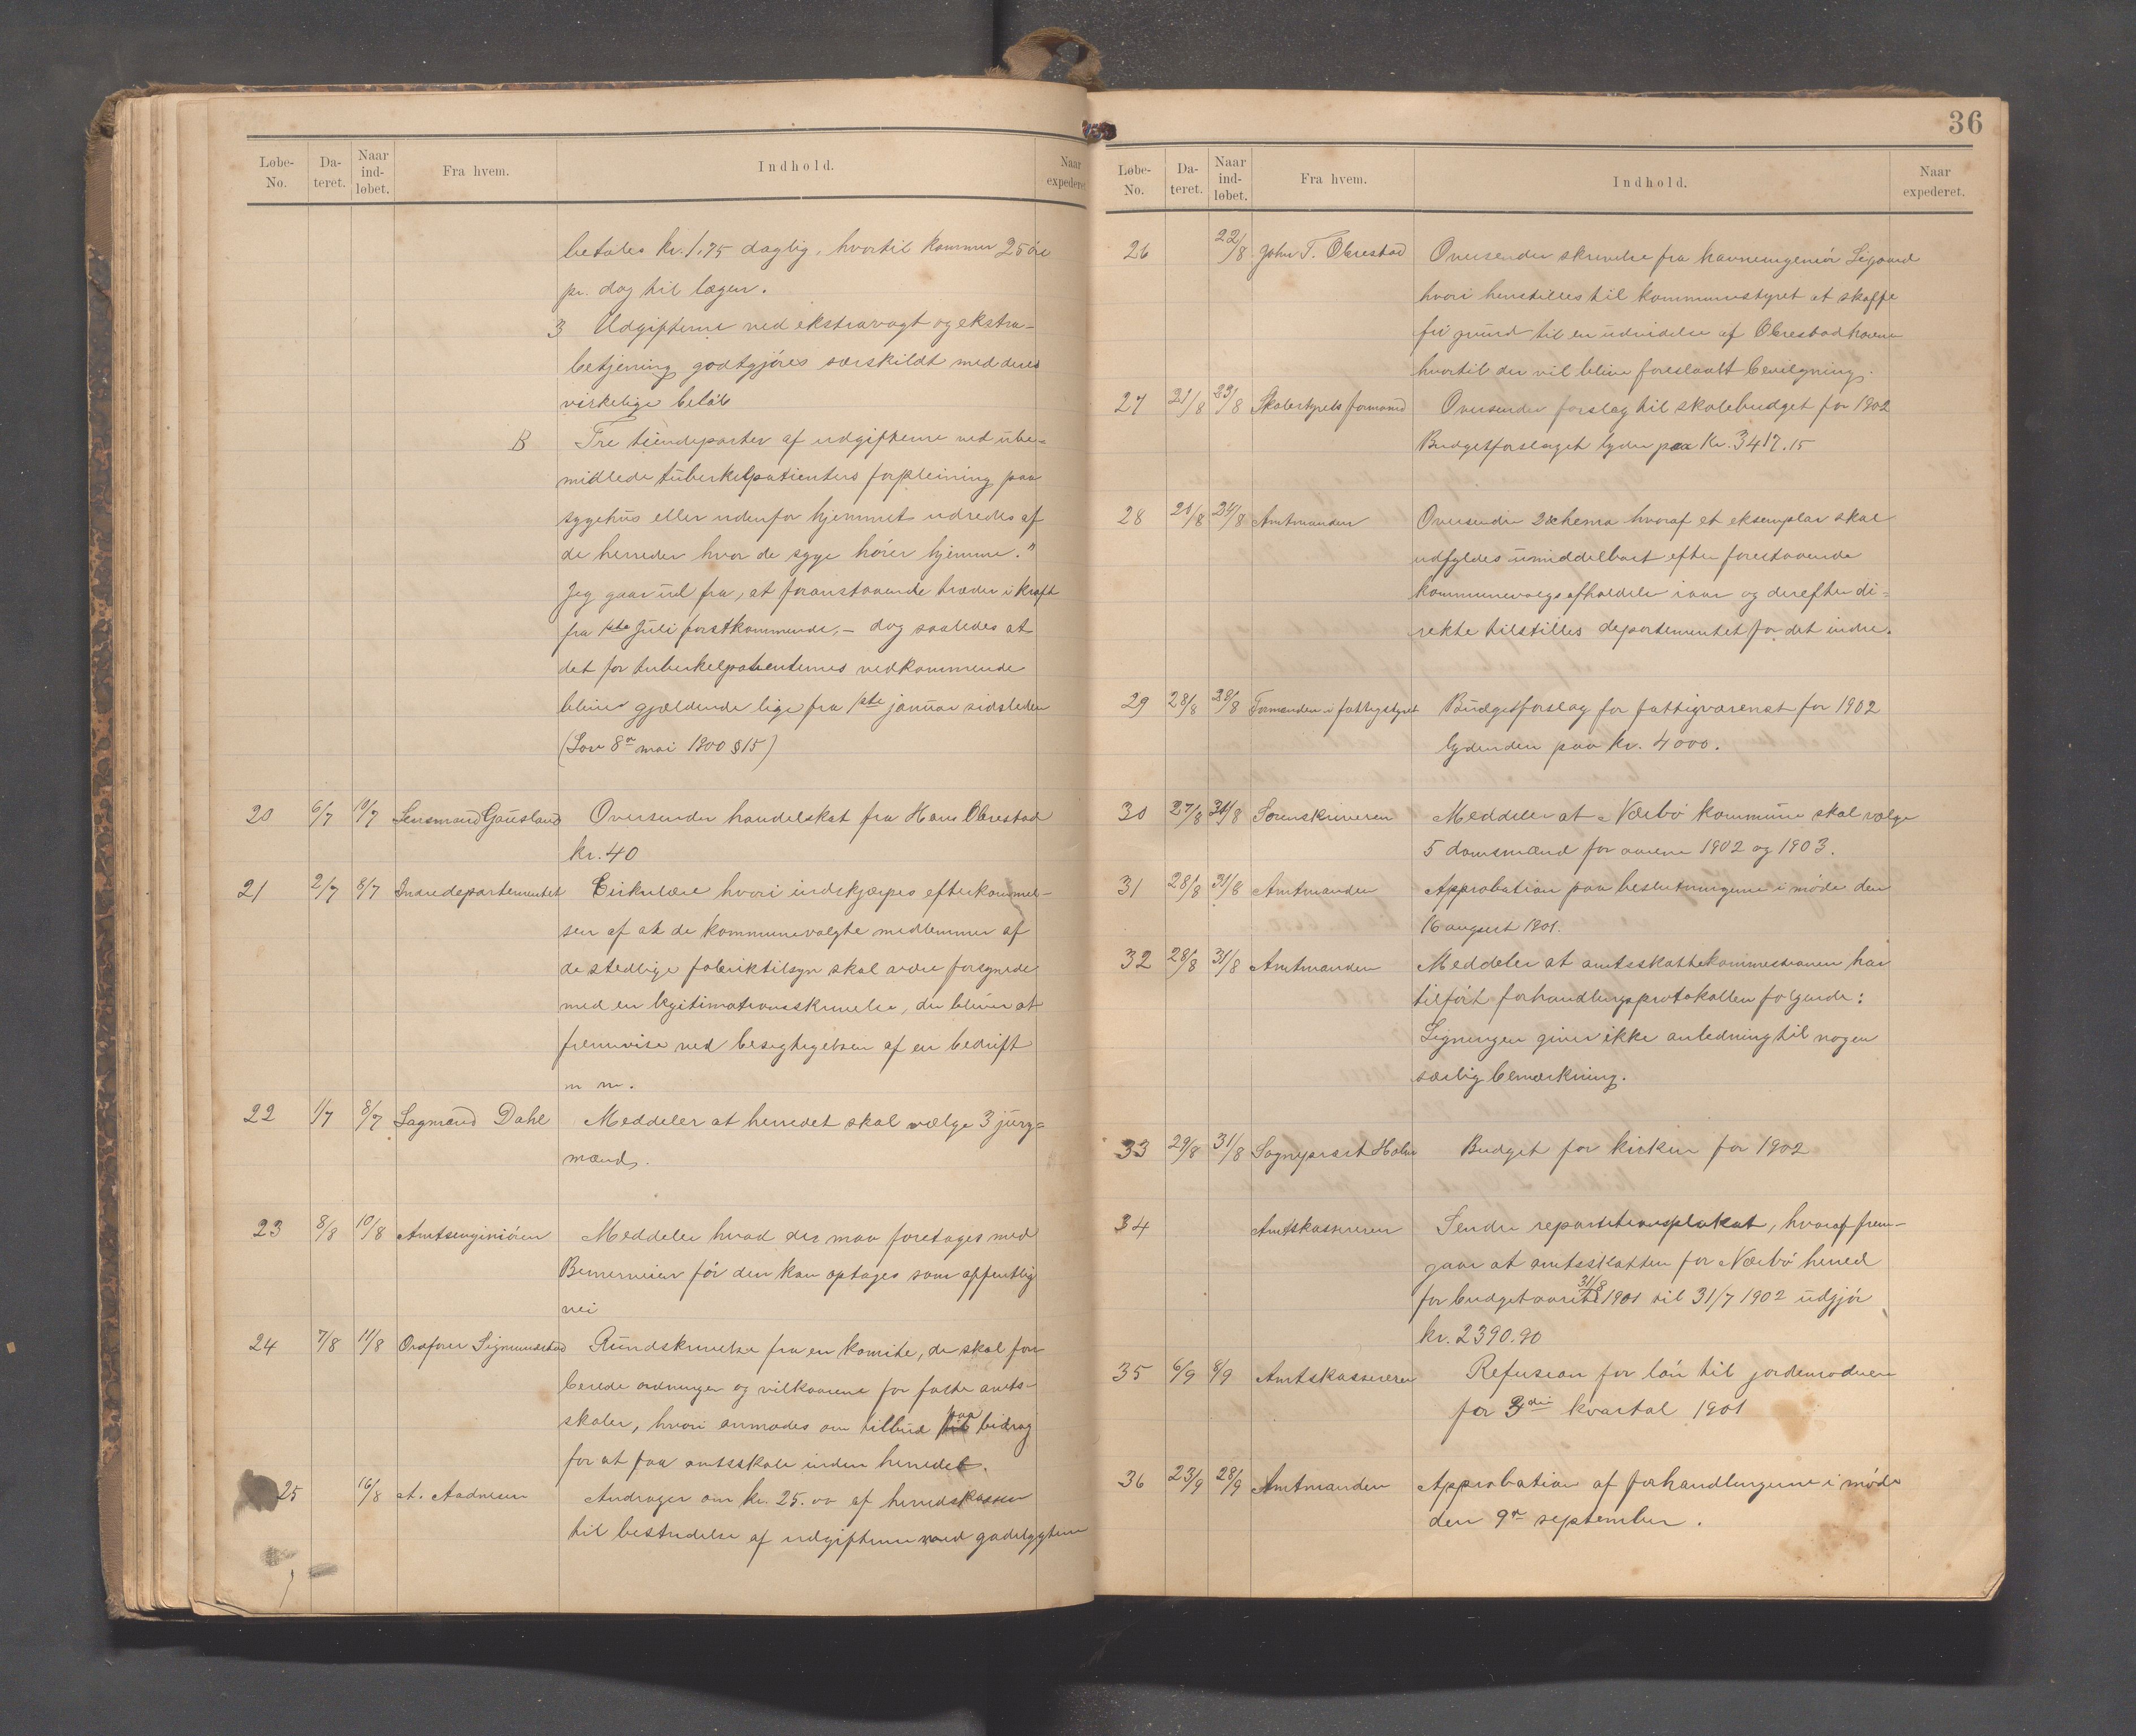 Løbe-No. Da-teret. Naar ind-løbet. Fra hvem. Indhold. Naar expederet.
betales kr. 1,75 daglig, hvortil kommer 25 öre
pr. dag til lægen.
3 Udgifterne ved ekstravagt og ekstra-
betjening godtgjöres særskildt med deres
virkelige belöb
B Tre tiendeparter af udgifterne ved übe-
midlede tüberkelpatienters forpleining paa
sygehüs eller udenfor hjemmet udredes af
de herreder hvor de syge hörer hjemme."
Jeg gaar ud fra, at foranstaaende træder i kraft
fra 1ste Juli förstkommende, — dog saaledes at
det for tuberkelpatienternes vedkommende
bliver gjældende lige fra 1ste januar sidstleden
(Lov 8de mai 1900 § 15)
20 6/7 10/7 Lensmand Gausland Oversender handelskat fra Hans Obrestad
kr. 40
21 2/7 8/7 Indredepartementet Cirkulære hvori indskjærpes efterkommel-
sen af at de kommunevalgte medlemmer af
de stedlige fabriktilsyn skal være forsynede
med en legitimationsskrivelse, der bliver at
fremvise ved besigtigelsen af en bedrift
m m.
22 1/7 8/7 Lagmand Dahl Meddeler at herredet skal vælge 3 jury-
mænd.
23 8/8 10/8 Amtsingeniören Meddeler hvad der maa foretages med
för den kan optages som offentlig
vei
24 7/8 11/8 Ordförer Sigmundstad Rundskrivelse fra en komite, der skal for
berede ordningen og vilkaarene for faste amts-
skoler, hvori anmodes om tilbud paa bidrag
for at faa amtsskole inden herredet.
25 16/8 A. Aadnesen Andrager om kr. 25.00 af herredskassen
til bestridelse af udgifterne med gadelygterne
36
Løbe-No. Da-teret. Naar ind-løbet. Fra hvem. Indhold. Naar expederet.
26 22/8 John T. Obrestad Oversender skrivelse fra havneingeniör
hvori henstilles til kommunestyret at skaffe
fri grund til en udvidelse af Obrestadhavn
hvortil der vil blive foreslaaet bevilgning.
27 21/8 23/8 Skolestyrets formand Oversender forslag til skolebudget for 1902
Budgetforslaget lyder paa Kr. 3417.15
28 21/8 24/8 Amtmanden Oversender 2 schema hvoraf et eksemplar skal
udfyldes umiddelbart efter forestaaende
kommunevalgs afholdelse iaar og derefter di-
rekte tilstilles departementet for det indre.
29 28/8 28/8 Formanden i fattigstyret Budgetforslag for fattigvæsenet for 1902
lydenden paa kr. 4000.
30 27/8 30/8 Sorenskriveren Meddeler at Nærbö kommune skal vælge
5 domsmænd for aarene 1902 og 1903.
31 28/8 31/8 Amtmanden Approbation paa beslutningerne i möde den
16 august 1901.
32 28/8 31/8 Amtmanden Meddeler at amtsskattekommissionen har
tilfört forhandlingsprotokollen følgende:
Ligningen giver ikke anledning til nogen
særlig bemærkning.
33 29/8 31/8 Sogneprest Holm Budget for kirken for 1902
34 Amtskassereren Sender repartitionsplakat, hvoraf frem-
gaar at amtsskatten for Nærbö herred
for budgetaaret 31/8 1901 til 31/7 1902 udgjör
kr. 2390.90
35 6/9 8/9 Amtskassereren Refusion for lön til jordemoderen
for 3die kvartal 1901
36 23/9 28/9 Amtmanden Approbation af forhandlingerne i möde
den 9de september.